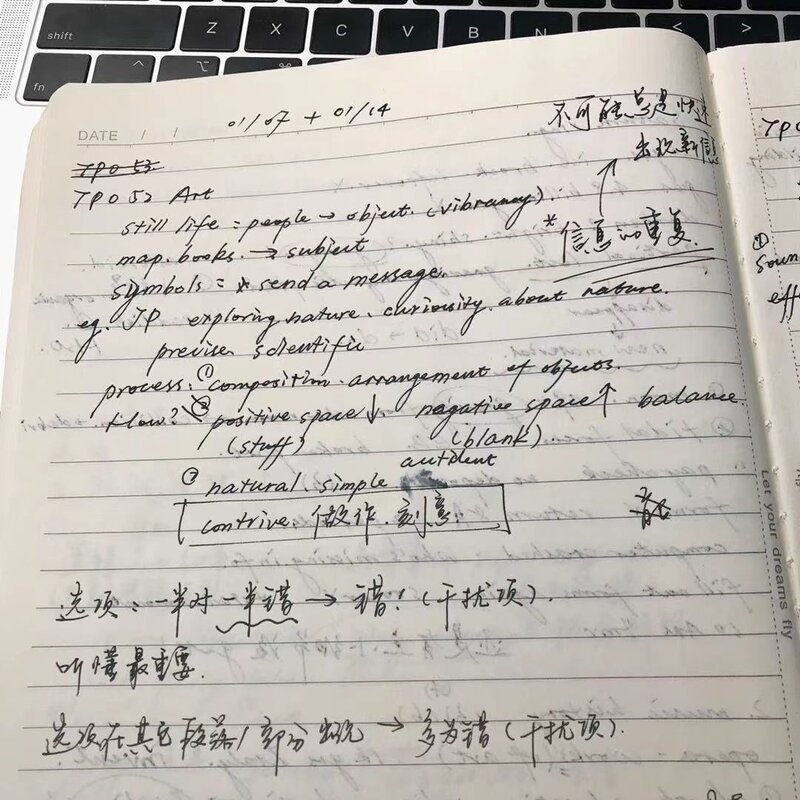 shift Z X C V B N M < >
fn ^ ⌥ ⌘
DATE / / 01/07 + 01/14
不可能总是快速
出现新信息
TPO 53
TPO 52 Art
still life = people → object. (vibrancy).
* 信息的重复.
map. books. → subject
symbols = * send a message.
eg. JP exploring nature. curiosity. about nature.
precise. scientific
process. ① composition. arrangement of objects.
flow? ② positive space ↓. negative space ↑ balance
(stuff) (blank).
② natural. simple.
contrive. 做作. 刻意.
选项:一半对一半错 → 错!(干扰项).
听懂最重要.
选项在其它段落/部分出现 → 多为错(干扰项).
TPO
①
soun
eff
Let your dreams fly